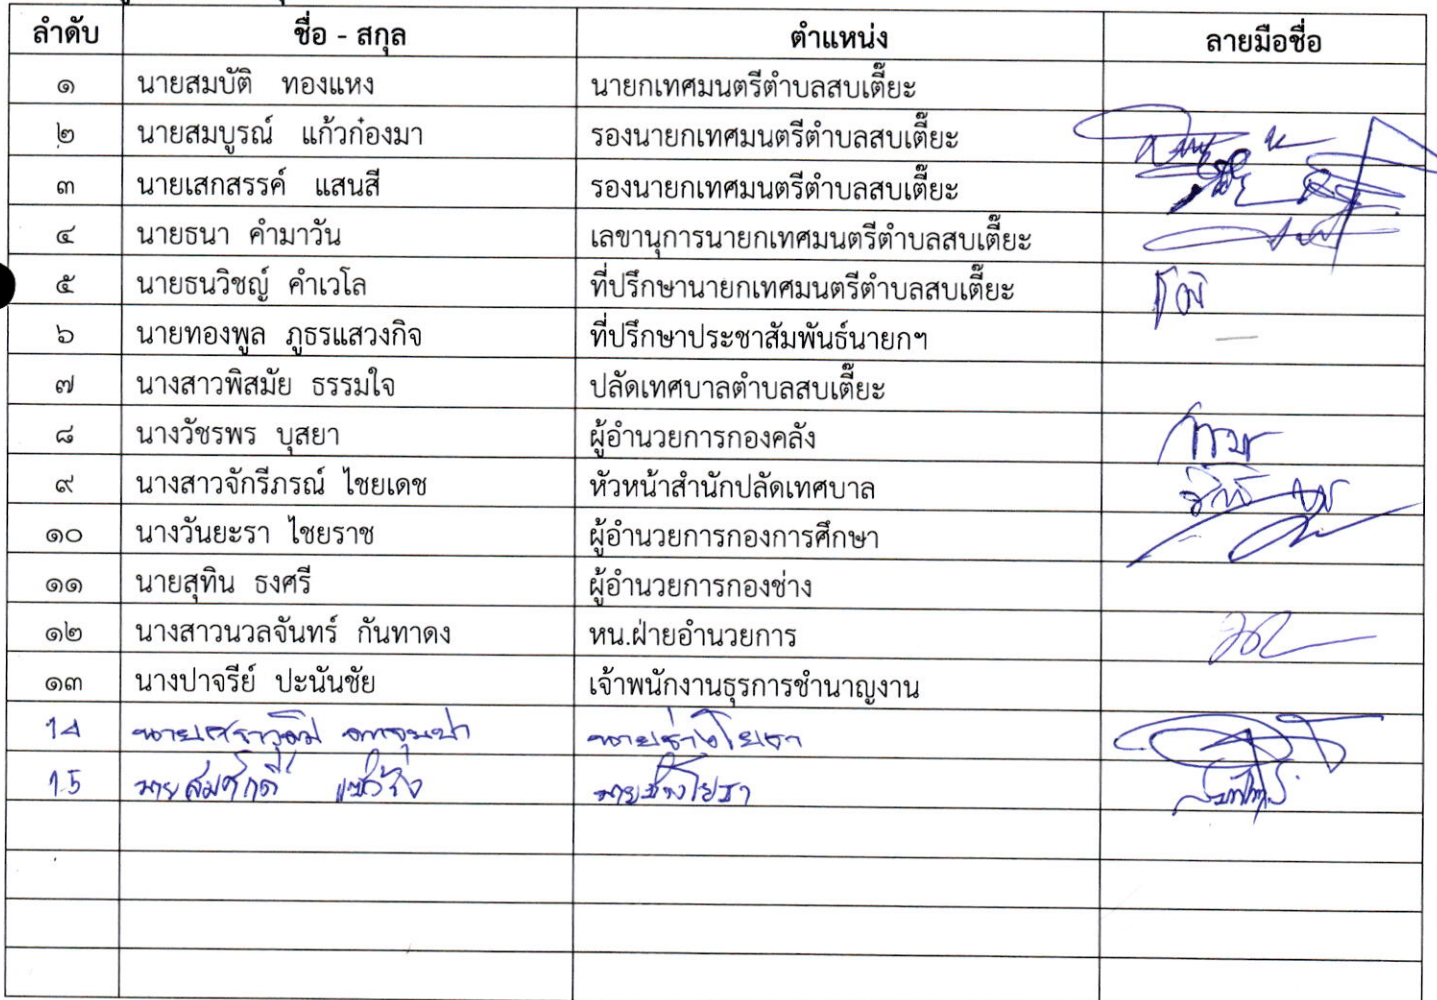 ลำดับ ชื่อ - สกุล ตำแหน่ง ลายมือชื่อ
๑ นายสมบัติ ทองแหง นายกเทศมนตรีตำบลสบเตี๊ยะ
๒ นายสมบูรณ์ แก้วก๋องมา รองนายกเทศมนตรีตำบลสบเตี๊ยะ
๓ นายเสกสรรค์ แสนสี รองนายกเทศมนตรีตำบลสบเตี๊ยะ
๔ นายธนา คำมาวัน เลขานุการนายกเทศมนตรีตำบลสบเตี๊ยะ
๕ นายธนวิชญ์ คำเวโล ที่ปรึกษานายกเทศมนตรีตำบลสบเตี๊ยะ
๖ นายทองพูล ภูธรแสวงกิจ ที่ปรึกษาประชาสัมพันธ์นายกฯ
๗ นางสาวพิสมัย ธรรมใจ ปลัดเทศบาลตำบลสบเตี๊ยะ
๘ นางวัชรพร บุสยา ผู้อำนวยการกองคลัง
๙ นางสาวจักรีภรณ์ ไชยเดช หัวหน้าสำนักปลัดเทศบาล
๑๐ นางวันยะรา ไชยราช ผู้อำนวยการกองการศึกษา
๑๑ นายสุทิน ธงศรี ผู้อำนวยการกองช่าง
๑๒ นางสาวนวลจันทร์ กันทาดง หน.ฝ่ายอำนวยการ
๑๓ นางปาจรีย์ ปะนันชัย เจ้าพนักงานธุรการชำนาญงาน
14 นายศราวุฒิ นายช่างโยธา
15 นายสมศักดิ์ นายช่างโยธา